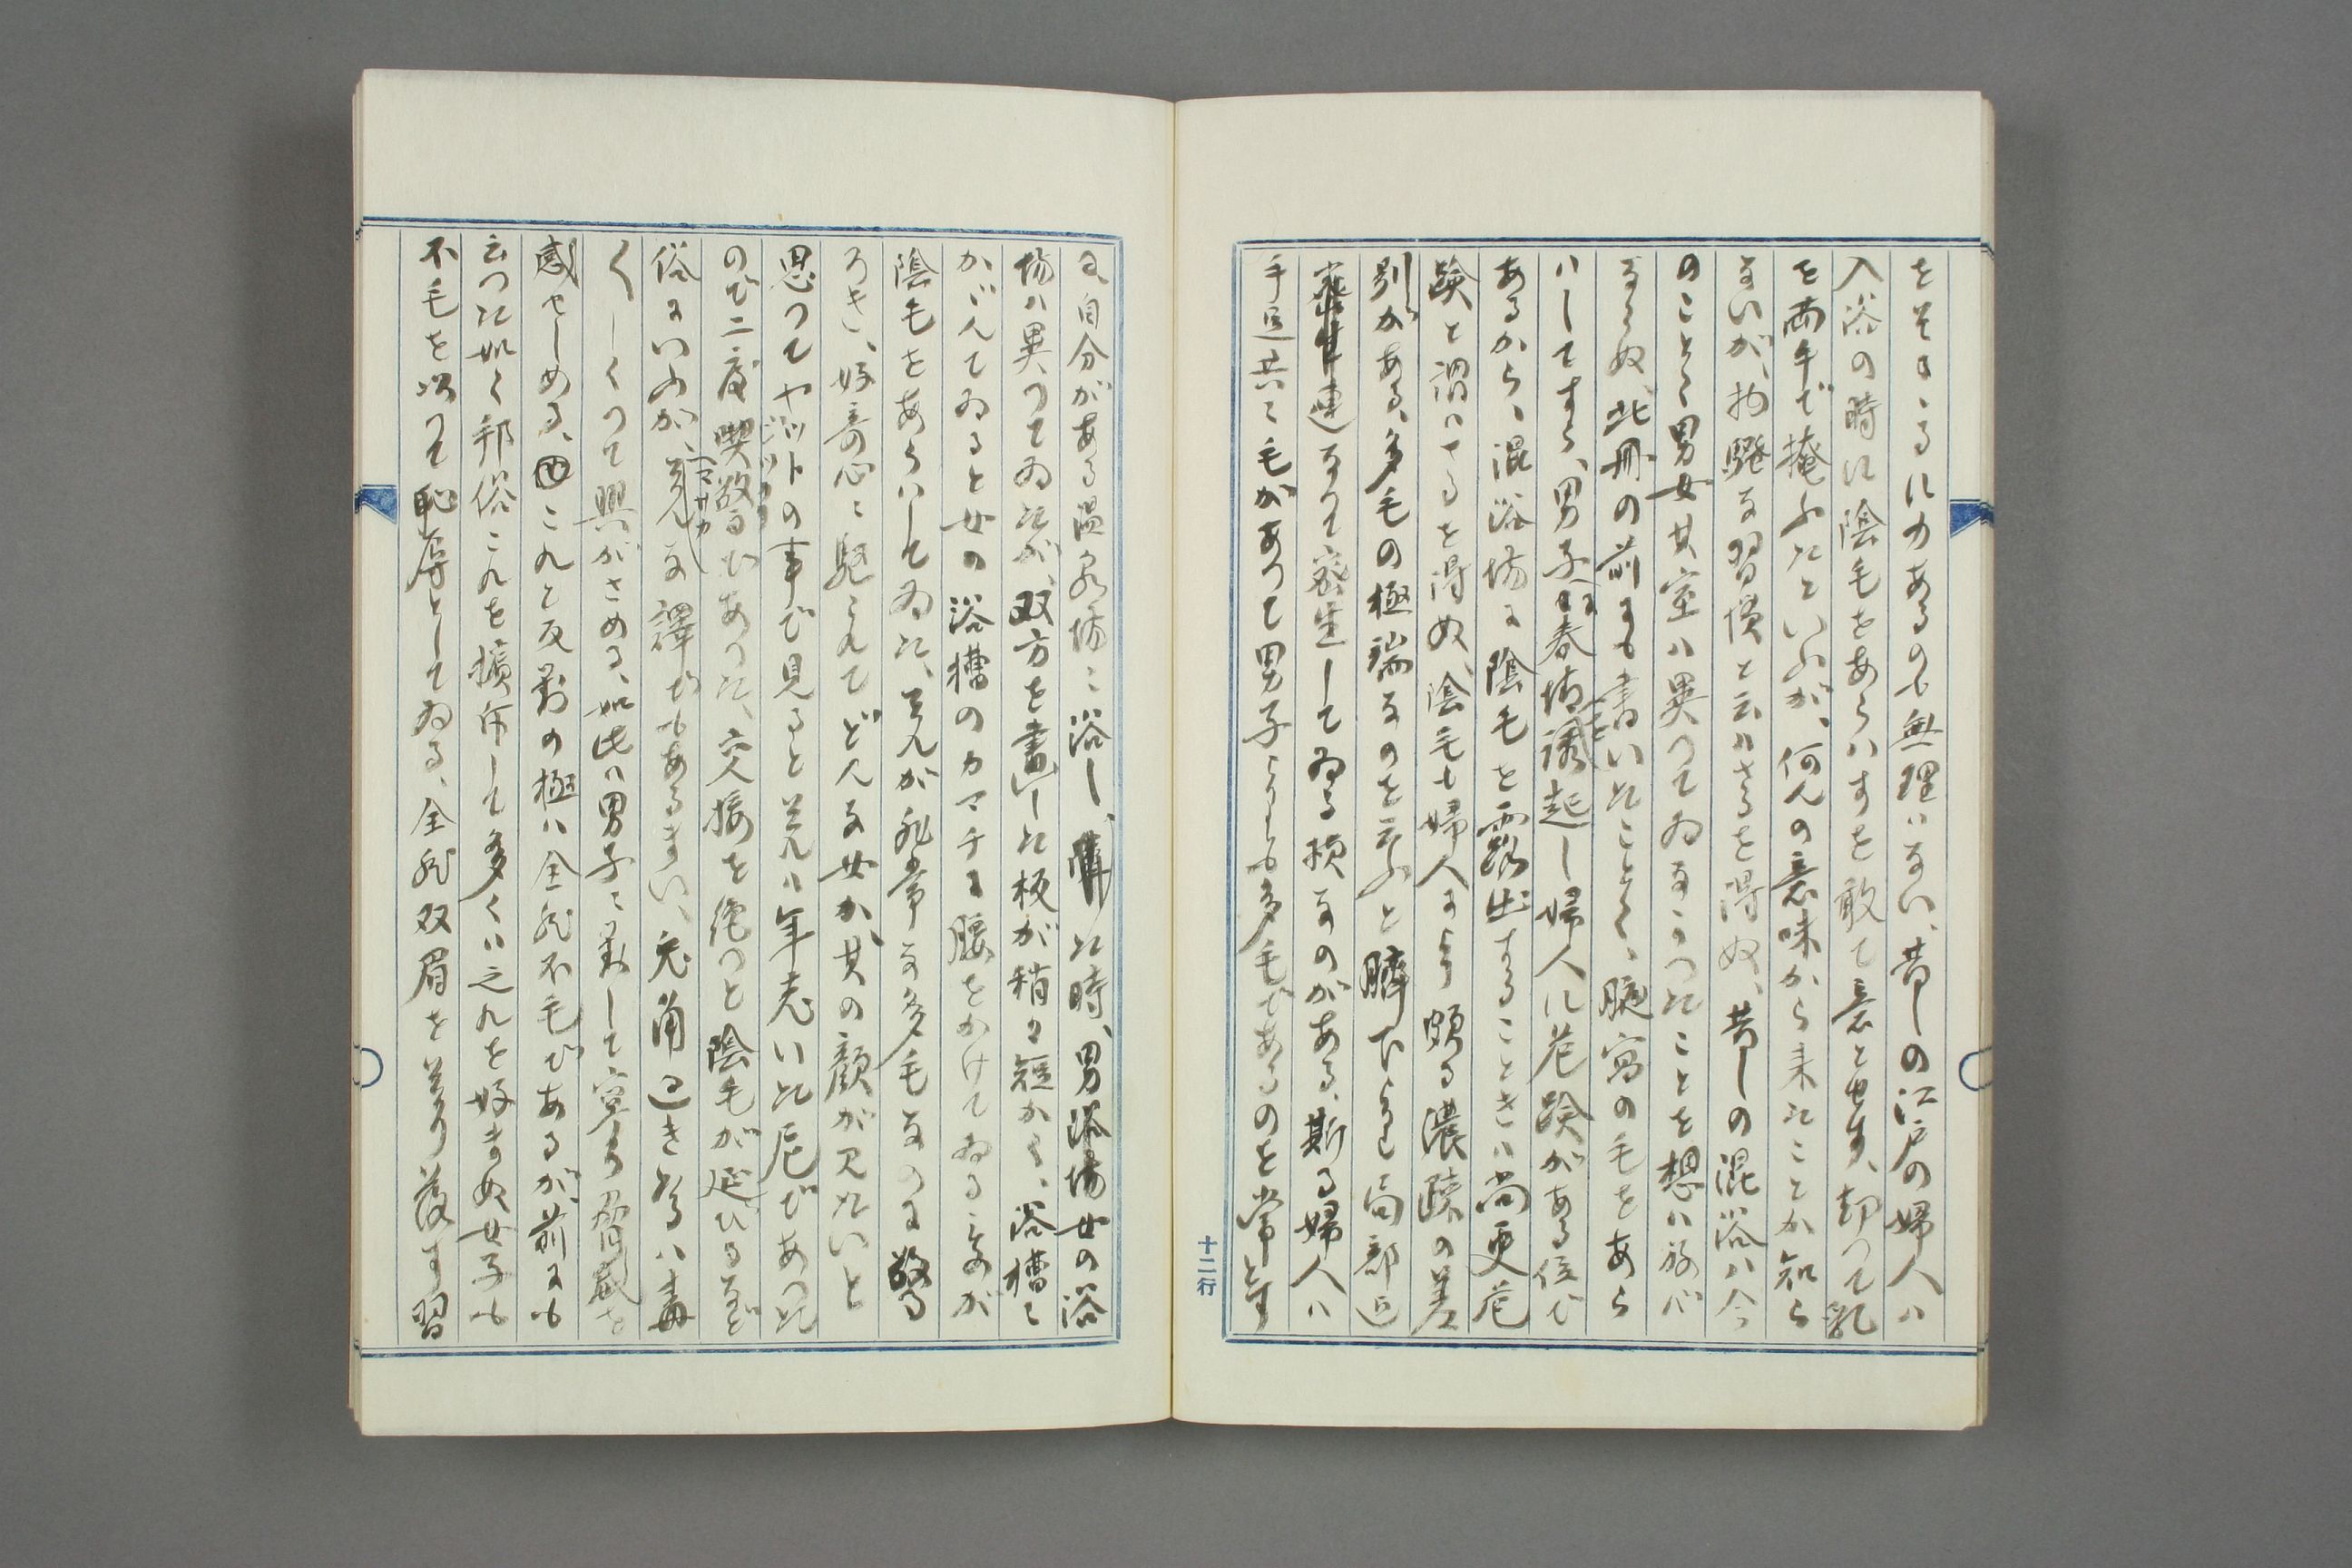 をそゝるに力あるのも無理はない、昔しの江戸の婦人ハ
入浴の時に陰毛をあらハすを敢て意とせず、却つて乳
を両手で掩ふたといふが、何んの意味から来たことか知ら
ないが、拘驗な習慣と云はさるを得ぬ、昔しの混浴ハ今
のことく男女其室ハ異つてゐなかつたことを想ハねバ
ならぬ、此冊の前にも書いたことく、腋窩の毛をあら
ハしてすら、男子は春情を誘起し婦人に危険がある位で
あるから、混浴場に陰毛を露出することきハ尚更危
険と謂ハさるを得ぬ、陰毛も婦人により頗る濃疎の差
別がある、多毛の極端なのを云ふと臍下より局部迄
連なりて密生してゐる様なのがある、斯る婦人ハ
手足共に毛があつて男子よりも多毛であるのを常とす
る、自分がある温泉場に浴し、た時、男浴場女の浴
場ハ異つてゐたが、双方を畫した板が稍々短かく、浴槽に
かゞんてゐると女の浴槽のカマチに腰をかけてゐる客が
陰毛をあらハしてゐた、夫が非常な多毛なのに驚
ろき、好奇心に駆られてどんな女か、其の顔が見たいと
思つてヤツトの事で見ると夫ハ年老いた尼であつた
ので二度喫驚であつた、交接を絶つと陰毛が延びるなど
俗にいふが、夫な譯でもあるまい、兎角過き多るハ毒
〱しくつて興がさめる、如此ハ男子に對して寧ろ脅威を
感せしめる、これと反對の極ハ全然不毛であるが、前にも
云つた如く邦俗これを擯斥して多くハ之れを好まぬ女子も
不毛を以つて恥辱としてゐる、全然双眉を剃り落す習
十二行